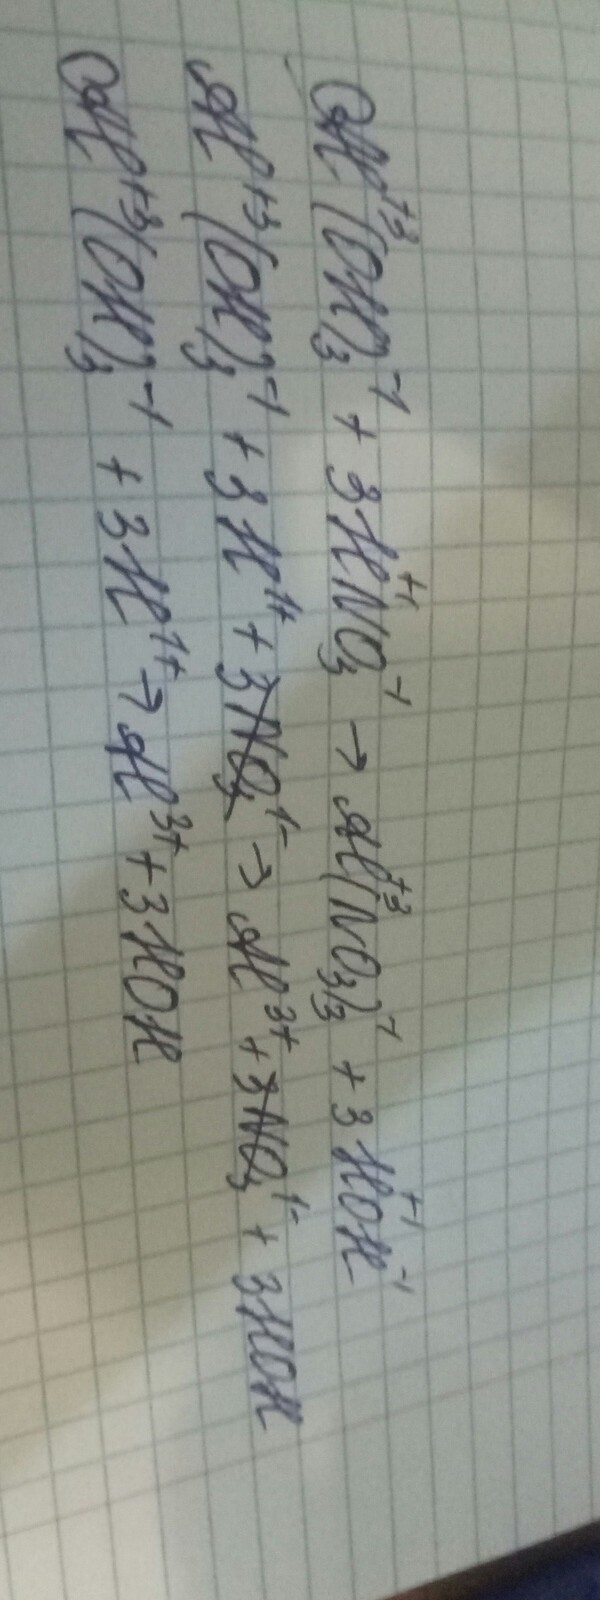 Al⁺³(OH)₃⁻¹ + 3H⁺¹NO₃⁻¹ → Al⁺³(NO₃)₃⁻¹ + 3H⁺¹OH⁻¹
Al⁺³(OH)₃⁻¹ + 3H¹⁺ + 3NO₃¹⁻ → Al³⁺ + 3NO₃¹⁻ + 3HOH
Al⁺³(OH)₃⁻¹ + 3H¹⁺ → Al³⁺ + 3HOH